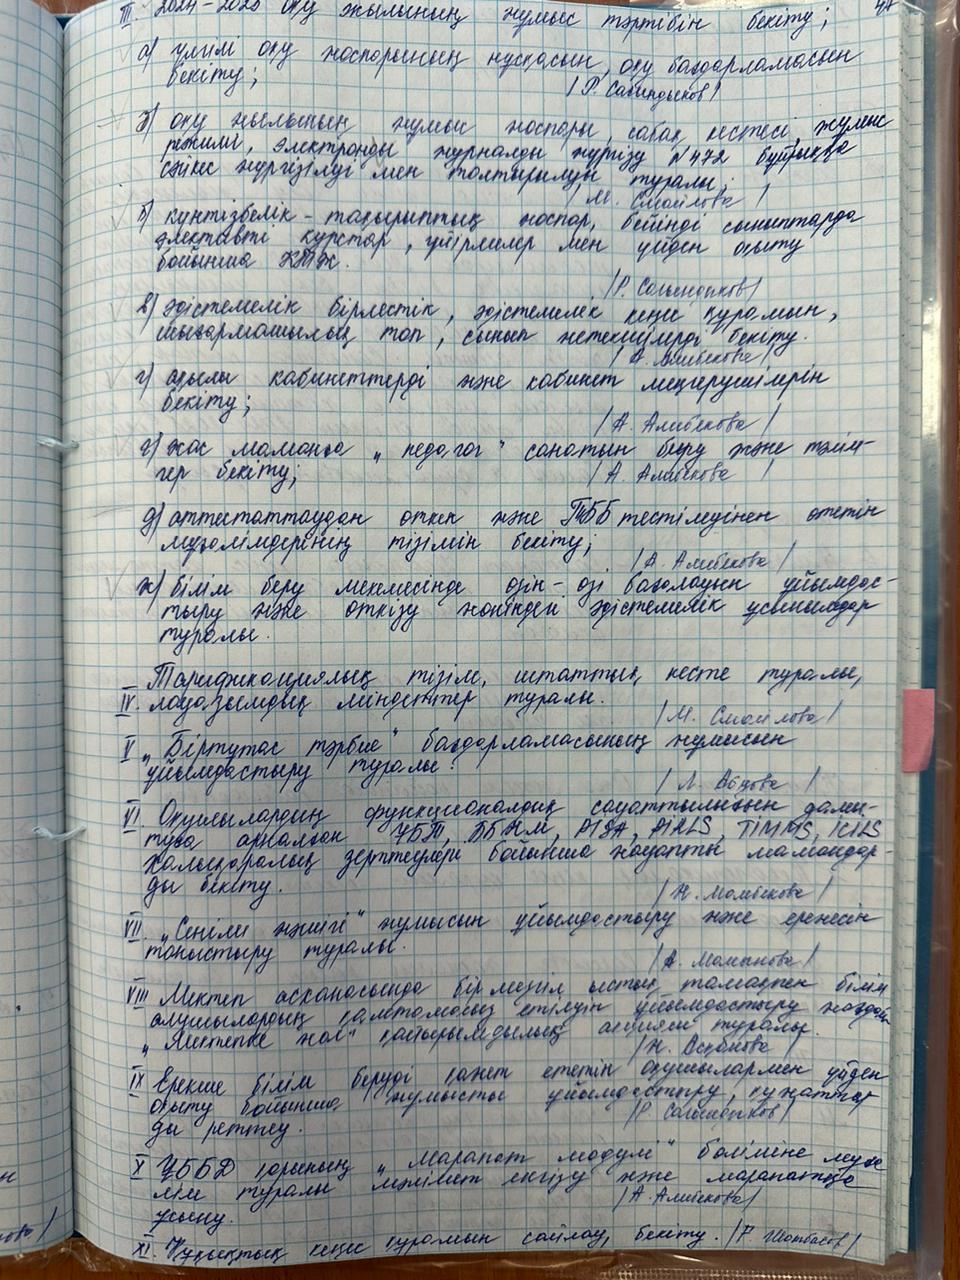 III. 2024-2025 оқу жылының жұмыс тәртібін бекіту;
а) үлгім оқу жоспарының нұсқасын, оқу бағдарламасын
бекіту; /Р. Сағындықов/
ә) оқу жылының жұмыс жоспары, сабақ кестесі, жұмыс
режимі, электронды журналды жүргізу №472 бұйрыққа
сәйкес жүргізілуі мен толтырылуы туралы;
/М. Смайлова/
б) күнтізбелік-тақырыптық жоспар, бейінді сыныптарда
элективті курстар, үйірмелер мен үйден оқыту
бойынша КТЖ.
/Р. Сағындықов/
в) әдістемелік бірлестік, әдістемелік кеңес құрамын,
шығармашылық топ, сынып жетекшілерді бекіту.
/А. Алибекова/
г) оқулы кабинеттерді және кабинет меңгерушілерін
бекіту;
/А. Алибекова/
ғ) жас маманға „педагог" санатын беру және тәлім-
гер бекіту; /А. Алибекова/
д) аттестаттаудан өткен және ПББ тестілеуінен өтетін
мұғалімдерінің тізімін бекіту;
/А. Алибекова/
ж) білім беру мекемесінде өзін-өзі бағалауын ұйымдас-
тыру және өткізу жөнінден әдістемелік ұсынымдар
туралы.
Тарификациялық тізім, штаттық кесте туралы,
IV. лауазымдық міндеттер туралы.
/М. Смайлова/
V „Біртұтас тәрбие" бағдарламасының жұмысын
ұйымдастыру туралы.
/Л. Абуова/
VI. Оқушылардың функционалдық сауаттылығын дамы-
туға арналған ҰБТ, ББЖМ, PISA, PIRLS, TIMMS, ICILS
халықаралық зерттеулері бойынша жауапты мамандар-
ды бекіту.
/Н. Мамбекова/
VII. „Сенім жәшігі" жұмысын ұйымдастыру және ережесін
таныстыру туралы.
/А. Мамынова/
VIII Мектеп асханасында бір мезгіл ыстық тамақпен білім
алушылардың қамтамасыз етілуін ұйымдастыру жағдайы
„Мектепке жол" қайырымдылық акциясы туралы.
/Н. Асқанова/
IX Ерекше білім беруді қажет ететін оқушылармен үйден
оқыту бойынша жұмысты ұйымдастыру, құжаттар
ды реттеу. /Р. Сағындықов/
X ҰББД қорының „Марапат модулі" бөліміне мұға
лім туралы мәлімет енгізу және марапатқа
ұсыну. /А. Алибекова/
XI. Құқықтық кеңес құрамын сайлау, бекіту.